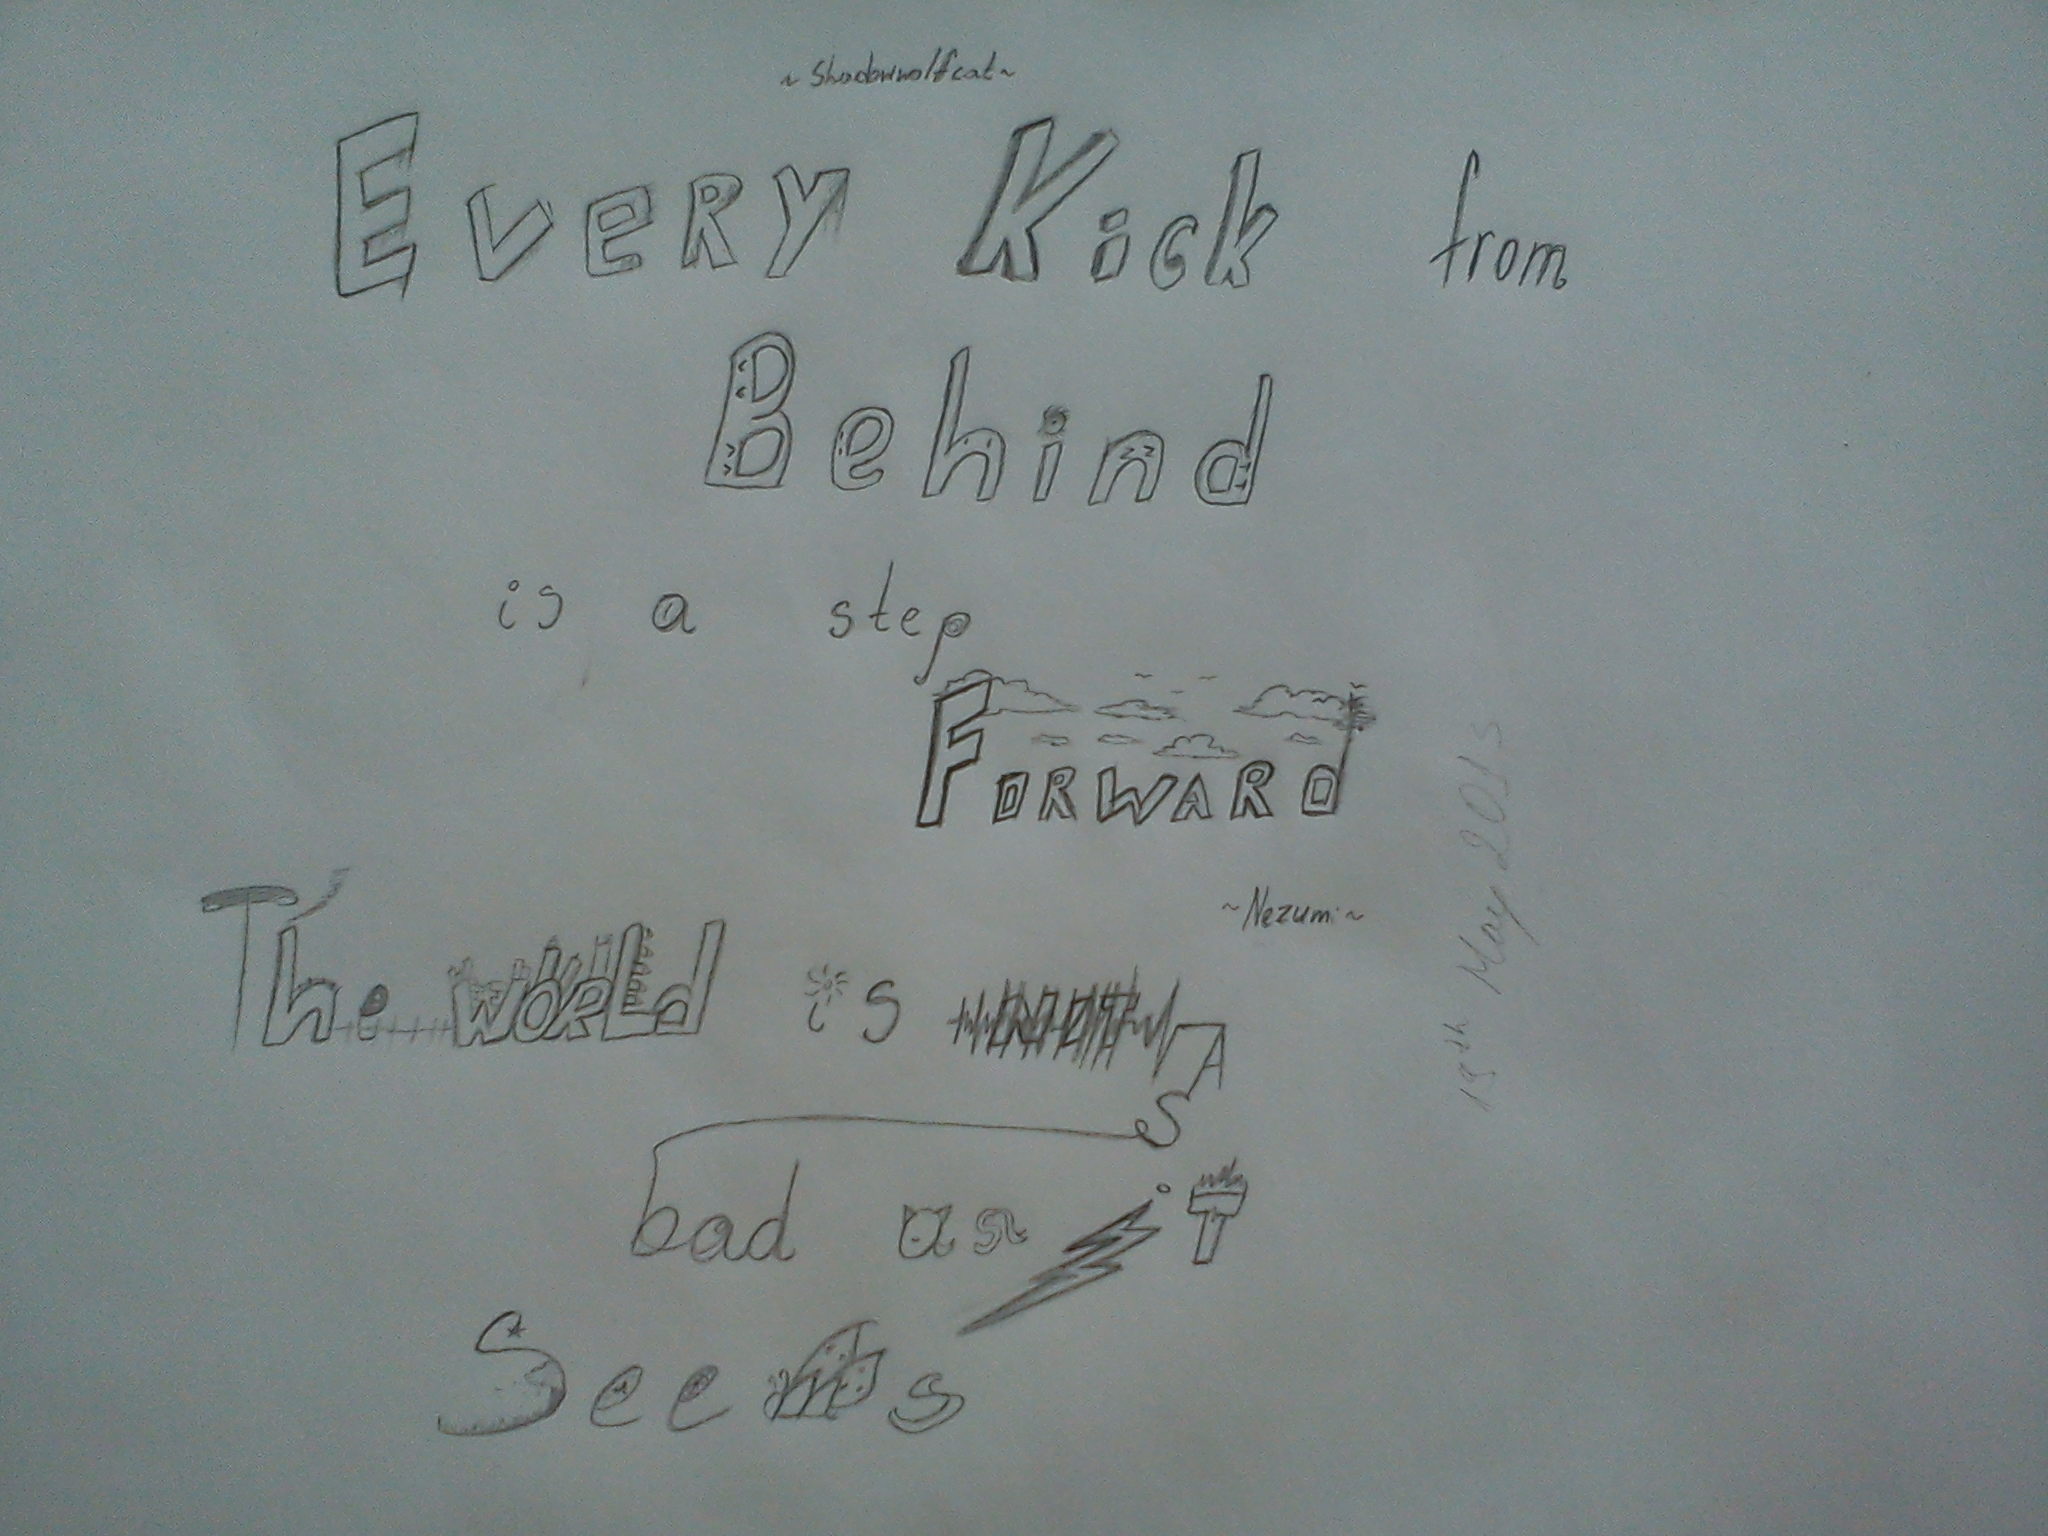 ~Shadowwolfcat~
Every Kick from
Behind
is a step
Forward
~Nezumi~
The World is not
As
bad as it
Seems
19th May 2015